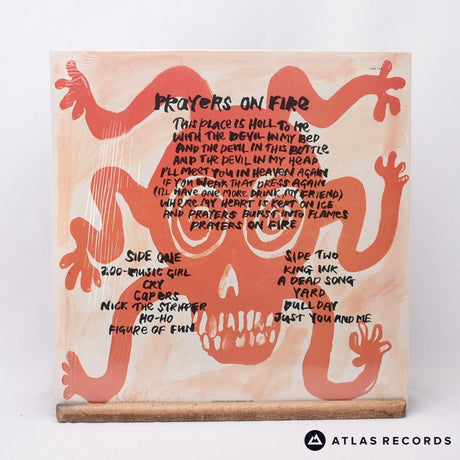 PRAYERS ON FIRE
THIS PLACE IS HELL TO ME
WITH THE DEVIL IN MY BED
AND THE DEVIL IN THIS BOTTLE
AND THE DEVIL IN MY HEAD
I'LL MEET YOU IN HEAVEN AGAIN
IF YOU WEAR THAT DRESS AGAIN
(I'LL HAVE ONE MORE DRINK, MY FRIEND)
WHERE MY HEART IS KEPT ON ICE
AND PRAYERS BURST INTO FLAMES
PRAYERS ON FIRE
SIDE ONE
ZOO-MUSIC GIRL
CRY
CAPERS
NICK THE STRIPPER
HO-HO
FIGURE OF FUN
SIDE TWO
KING INK
A DEAD SONG
YARD
DULL DAY
JUST YOU AND ME
ATLAS RECORDS